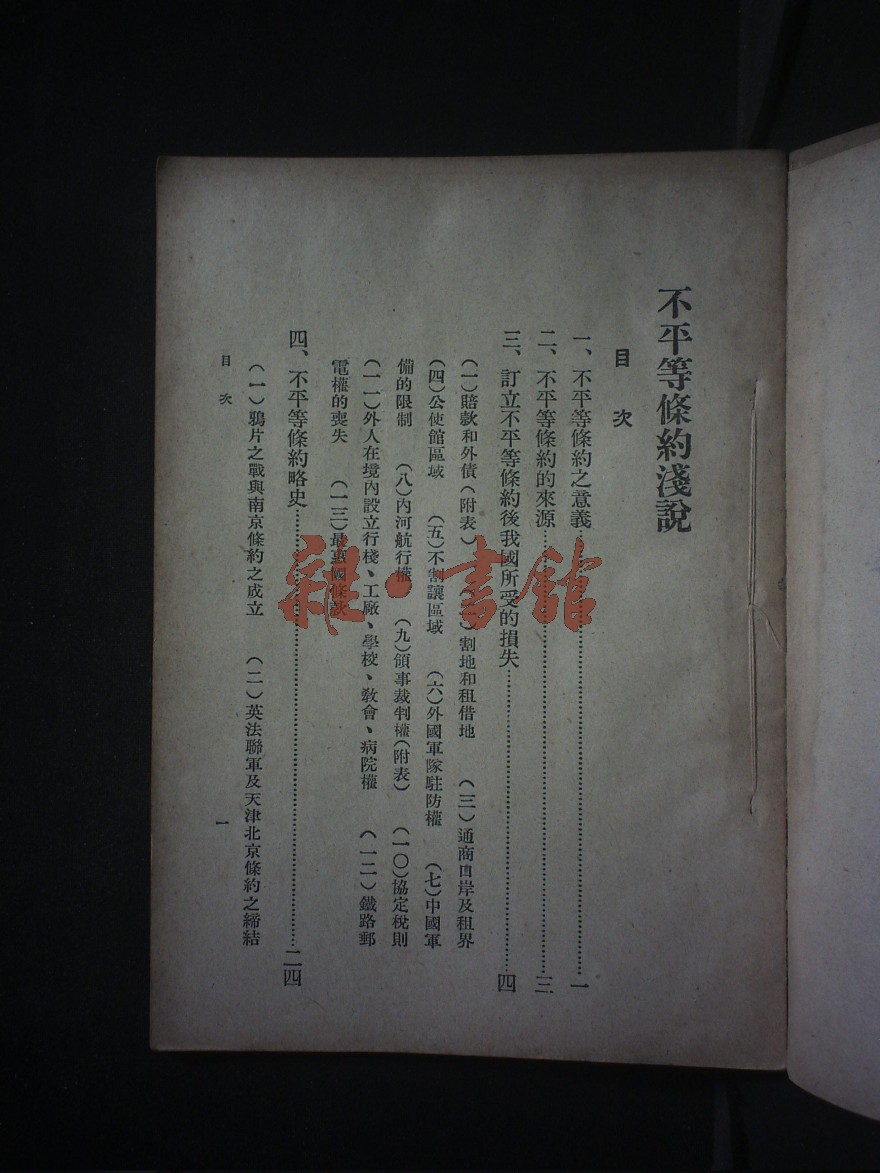 不平等條約淺說
目次
一、不平等條約之意義……一
二、不平等條約的來源……三
三、訂立不平等條約後我國所受的損失……四
（一）賠款和外債（附表）　（二）割地和租借地　（三）通商口岸及租界
（四）公使館區域　（五）不割讓區域　（六）外國軍隊駐防權　（七）中國軍
備的限制　（八）內河航行權　（九）領事裁判權（附表）　（一〇）協定稅則
（一一）外人在境內設立行棧、工廠、學校、教會、病院權　（一二）鐵路郵
電權的喪失　（一三）最惠國條款
四、不平等條約略史……二四
（一）鴉片之戰與南京條約之成立　（二）英法聯軍及天津北京條約之締結
目次　一
雜·書館